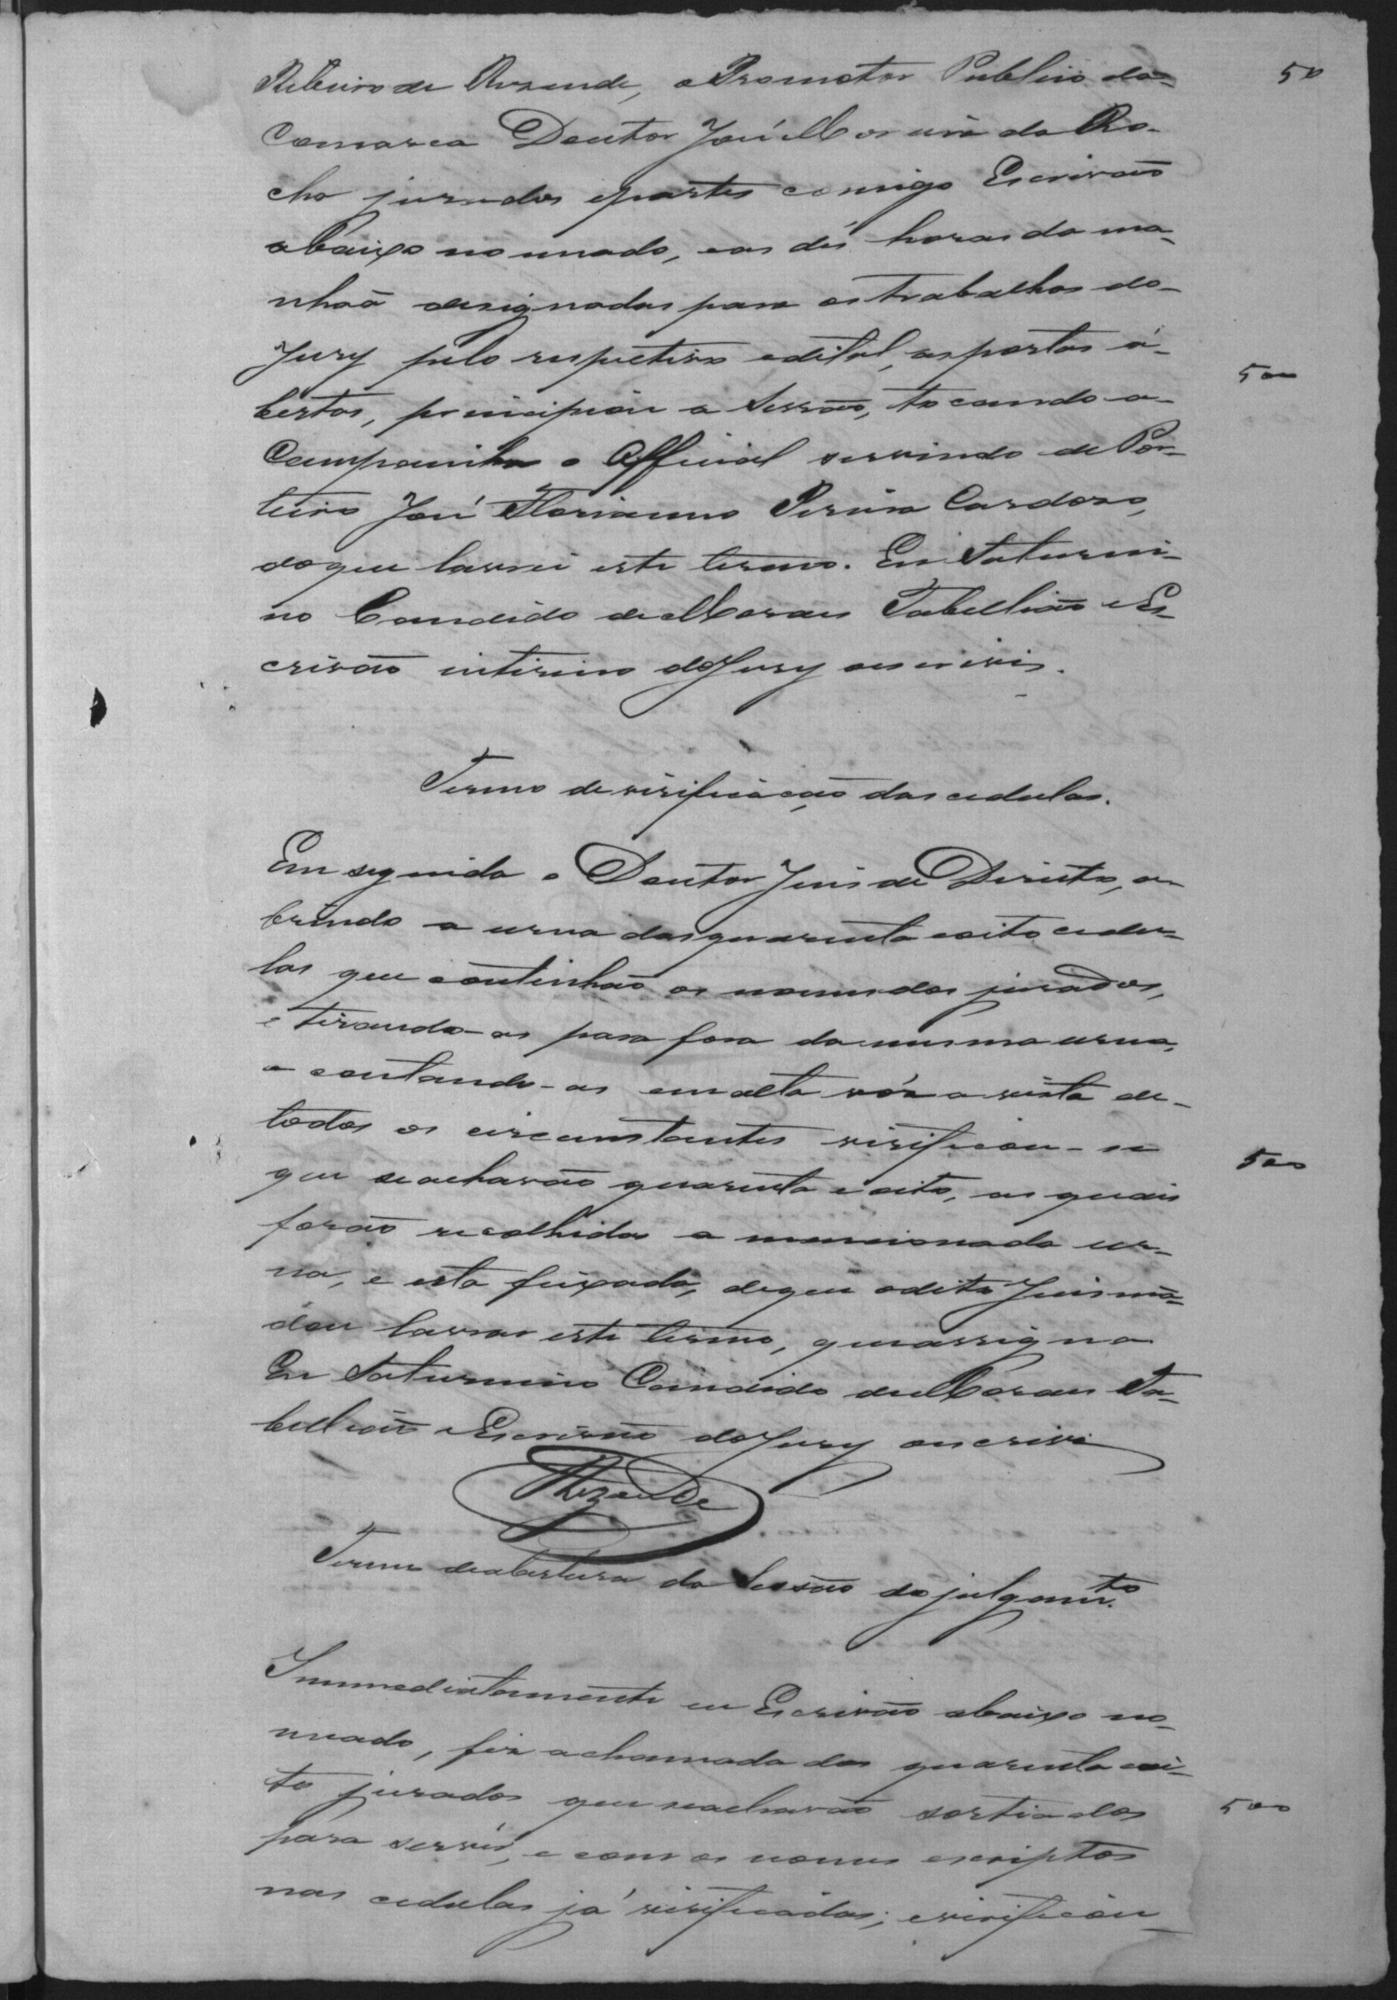 50
Ribeiro de Resende, o Promotor Publico da
Comarca Doutor José Maria da Ro-
cha jurados e partes comigo Escrivão
abaixo nomeado, e as dés horas da ma-
nhaã designadas para os trabalhos do
Jury pelo respetivo edital, as portas á-
500
bertas, principiou a Sessão, tocando a
Campainha o Official servindo de Por-
teiro José Florianno Pereira Cardozo,
do que lavrei este termo. Eu Saturni-
no Candido de Moraes Tabellião e Es
crivão interino do Jury escrevi.
Termo de verificação das cedulas.
Em seguida o Doutor Juis de Direito, a
brindo a urna das quarenta e oito cedu-
las que continhão os nomes dos jurados,
e tirando-as para fora da mesma urna,
e contando-as em alta vóz a vista de
todos os circunstantes verificou-se
que se achavão quarenta e oito, as quais
500
forão recolhidas a mencionada ur-
na, e esta feixada, de que o dito Juis mã-
dou lavrar este termo, que assigna
Eu Saturnino Candido de Moraes Ta-
bellião e Escrivão do Jury o escrevi
Rezende
Termo de abertura da Sessão do julgam.to
Immediatamente eu Escrivão abaixo no-
meado, fiz a chamada dos quarenta e oi-
to jurados que se achavão sortiados
500
para servir, e com os nomes escriptos
nas cedulas já verificadas; e verificou-